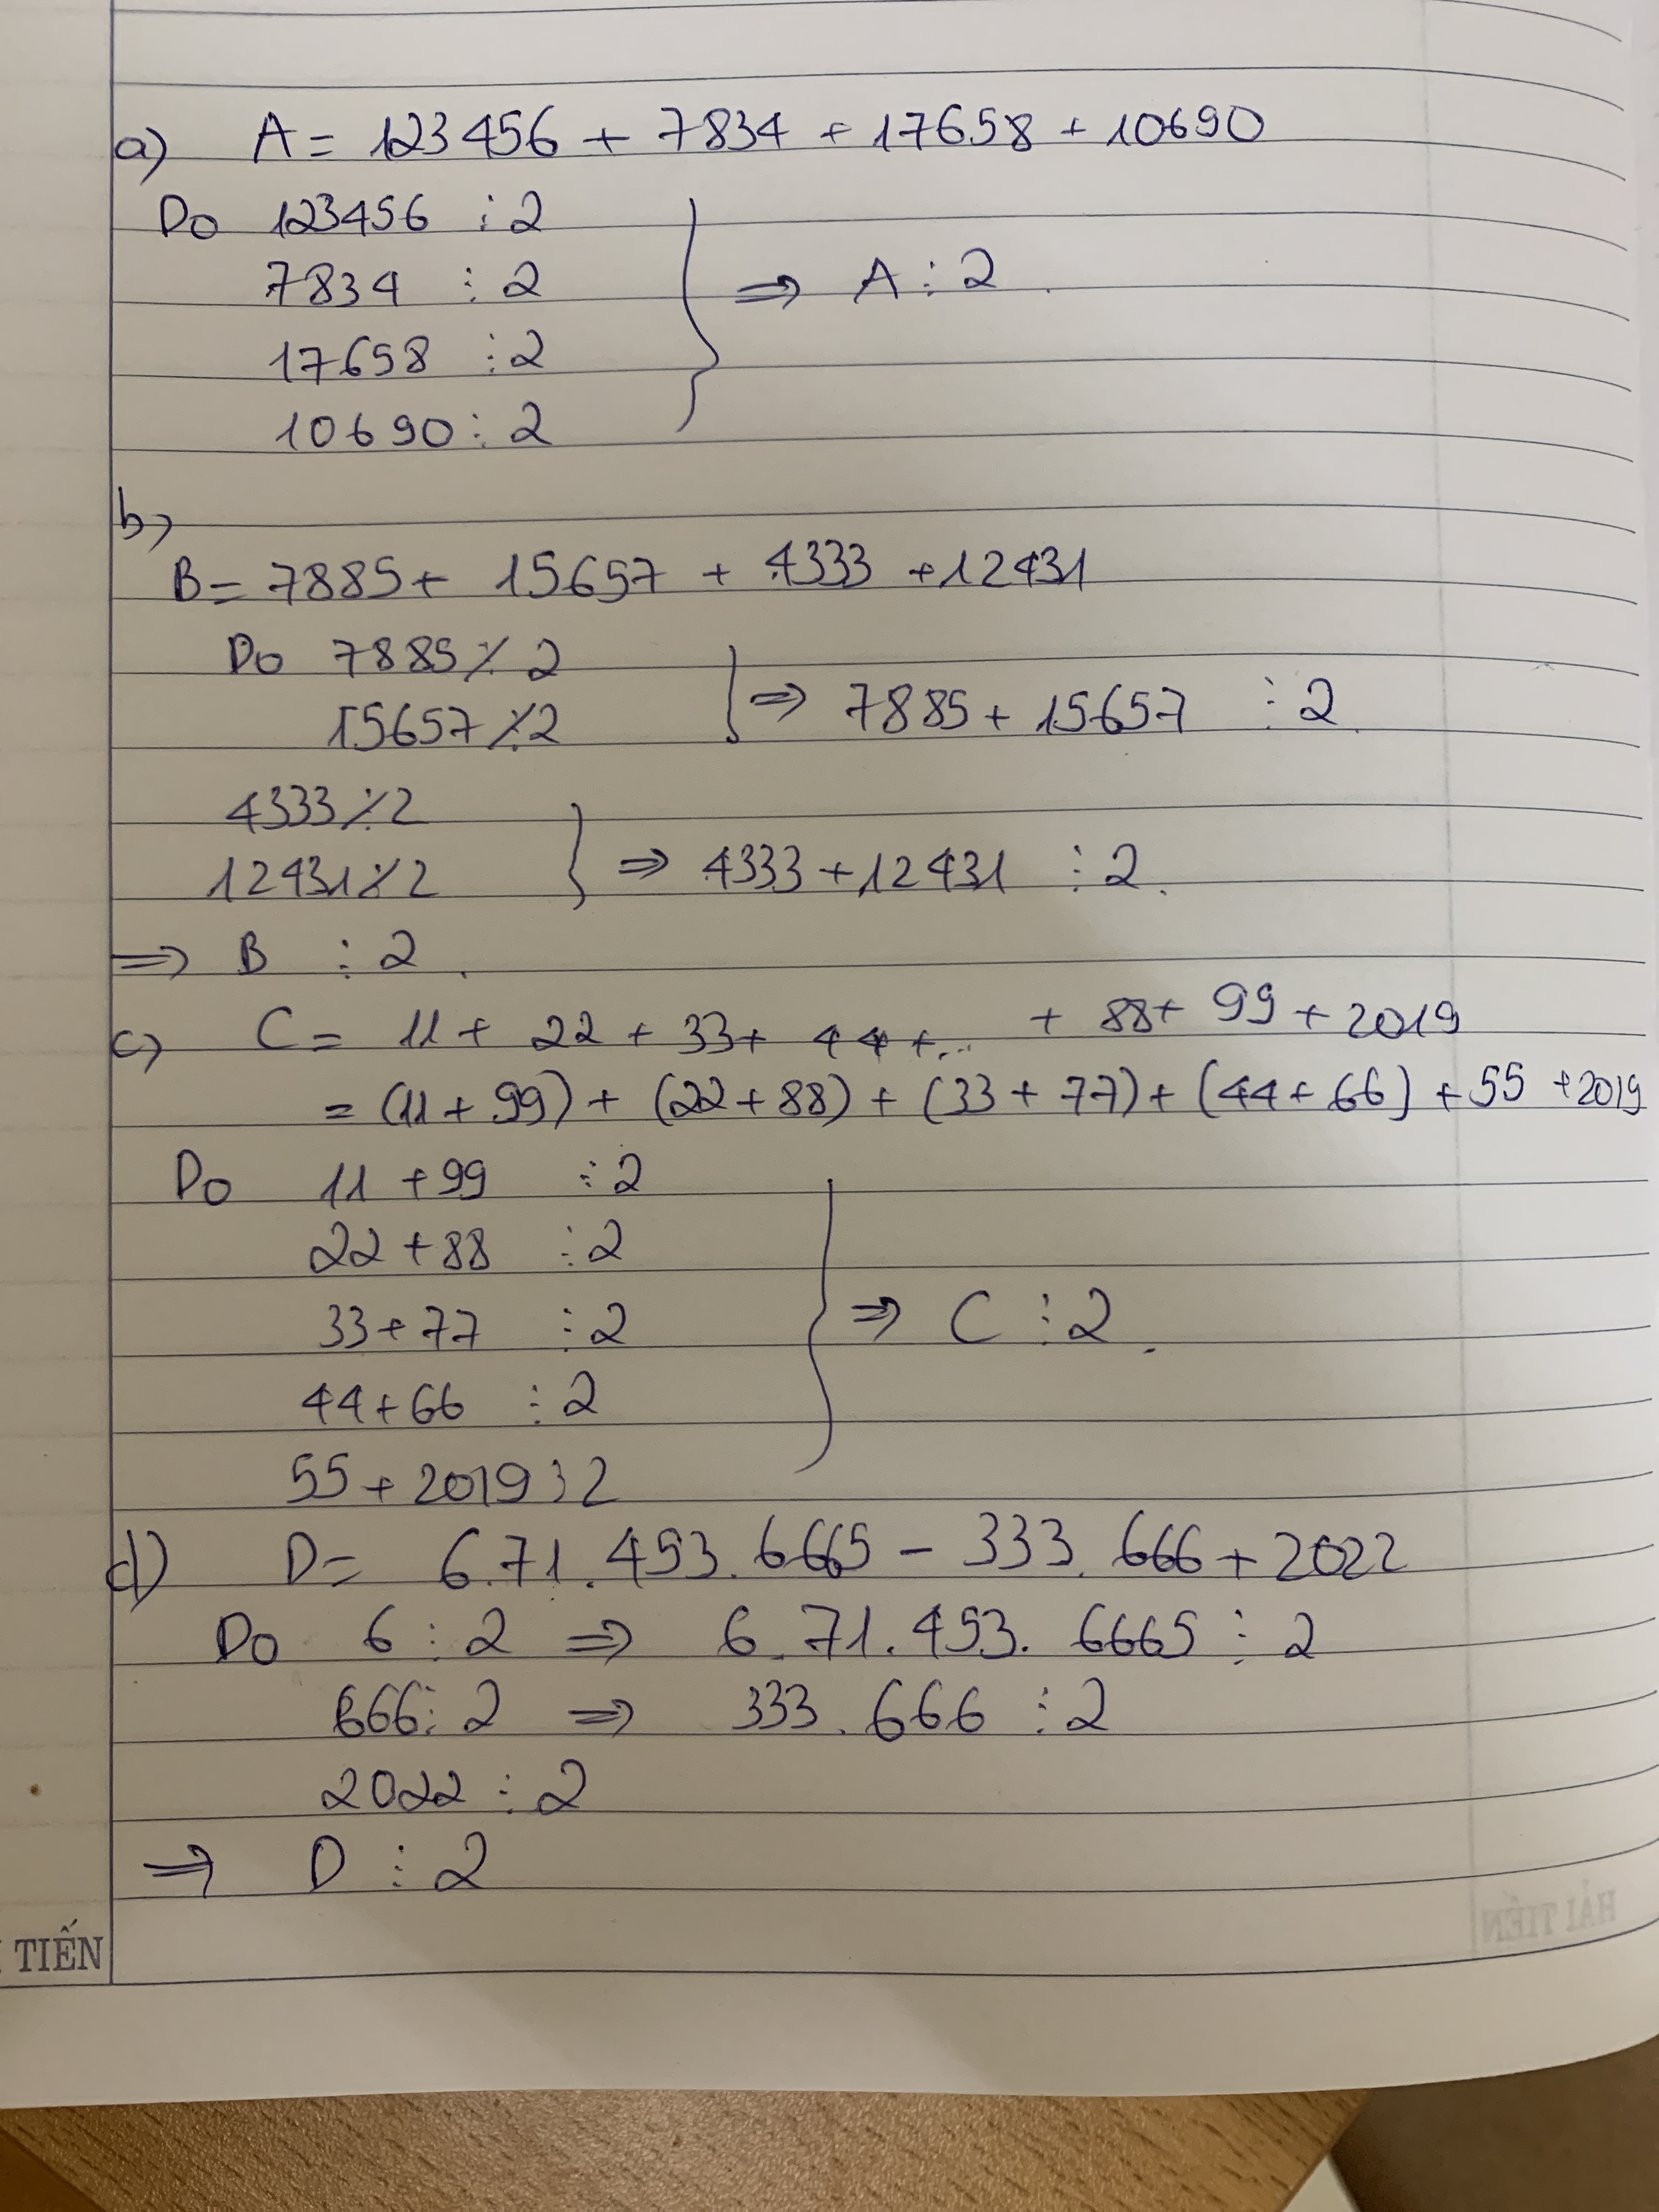 a) A = 123456 + 7834 + 17658 + 10690
Do 123456 ⋮ 2
7834 ⋮ 2 ⇒ A ⋮ 2.
17658 ⋮ 2
10690 ⋮ 2
b)
B = 7885 + 15657 + 4333 + 12431
Do 7885 ⋮̸ 2
15657 ⋮̸ 2 ⇒ 7885 + 15657 ⋮ 2.
4333 ⋮̸ 2
12431 ⋮̸ 2 ⇒ 4333 + 12431 ⋮ 2.
⇒ B ⋮ 2.
c) C = 11 + 22 + 33 + 44 + ... + 88 + 99 + 2019
= (11 + 99) + (22 + 88) + (33 + 77) + (44 + 66) + 55 + 2019
Do 11 + 99 ⋮ 2
22 + 88 ⋮ 2
33 + 77 ⋮ 2 ⇒ C ⋮ 2.
44 + 66 ⋮ 2
55 + 2019 ⋮ 2
d) D = 6.71.453.6665 - 333.666 + 2022
Do 6 ⋮ 2 ⇒ 6.71.453.6665 ⋮ 2
666 ⋮ 2 ⇒ 333.666 ⋮ 2
2022 ⋮ 2
⇒ D ⋮ 2
TIẾN
HẢI TIẾN